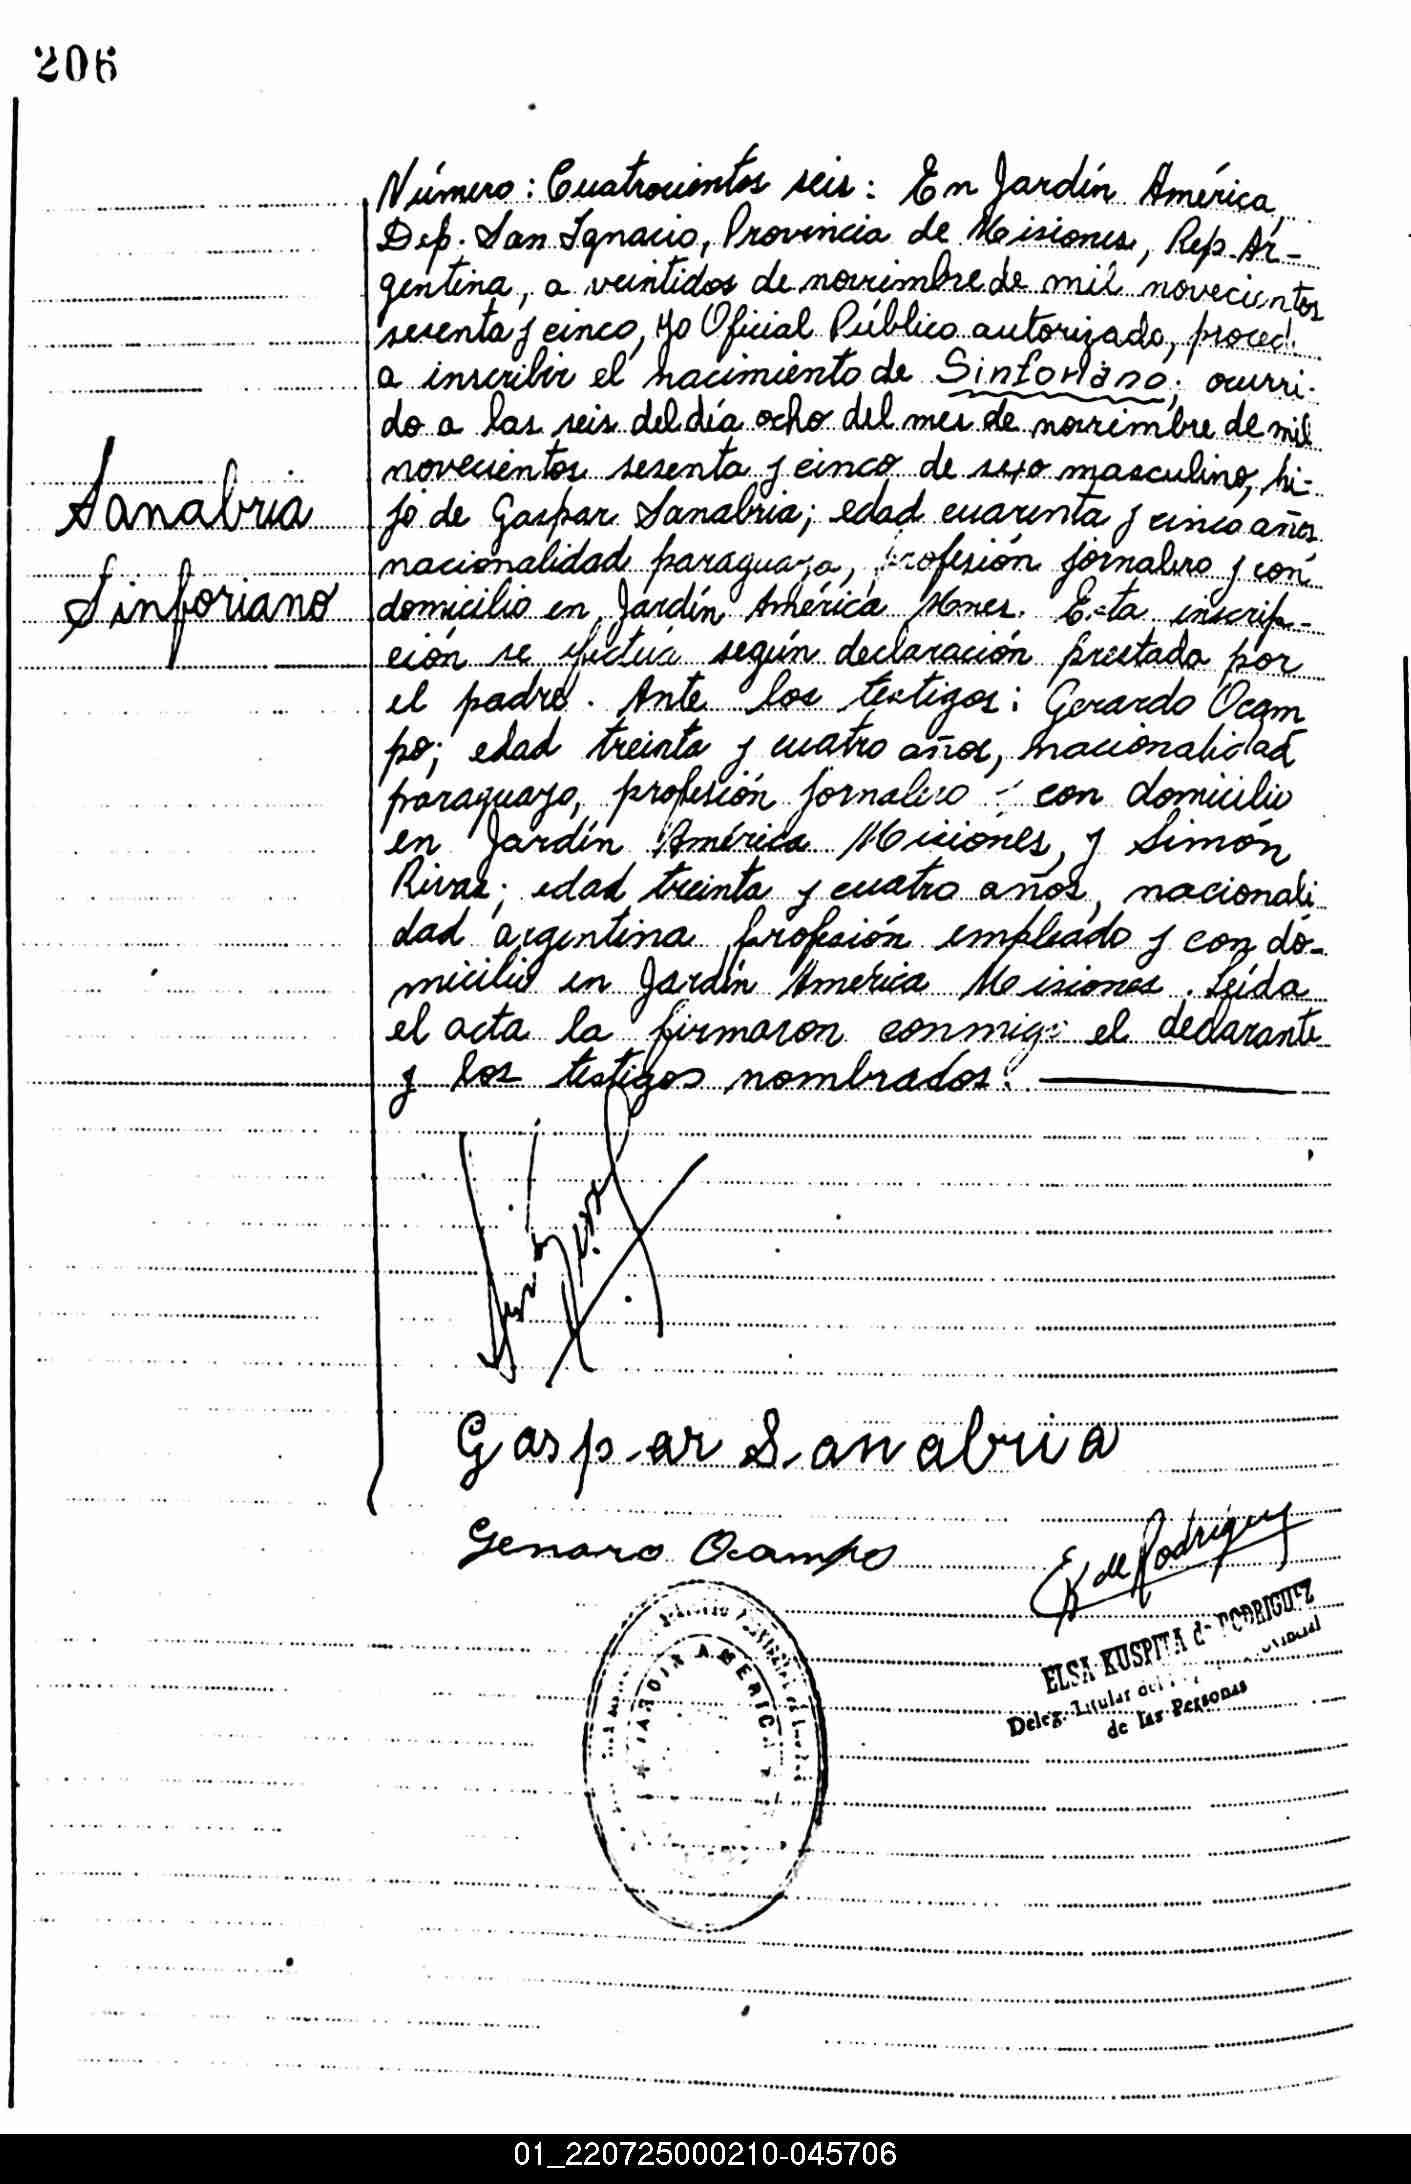 206
Número: Cuatrocientos seis: En Jardín América,
Dep. San Ignacio, Provincia de Misiones, Rep. Ar-
gentina, a veintidos de noviembre de mil novecientos
sesenta y cinco, yo Oficial Público autorizado, procedi
a inscribir el nacimiento de Sinforiano; ocurri-
do a las seis del día ocho del mes de noviembre de mil
novecientos sesenta y cinco de sexo masculino, hi-
jo de Gaspar Sanabria; edad cuarenta y cinco años
nacionalidad paraguaya, profesión jornalero y con
domicilio en Jardín América Mnes. Esta inscrip-
ción se efectúa según declaración prestada por
el padre. Ante los testigos: Gerardo Ocam
po; edad treinta y cuatro años, nacionalidad
paraguayo, profesión jornalero y con domicilio
en Jardín América Misiones, y Simón
Rivas; edad treinta y cuatro años, nacionali
dad argentina profesión empleado y con do-
micilio en Jardín América Misiones. Leída
el acta la firmaron conmigo el declarante
y los testigos nombrados.
Sanabria
Sinforiano
Gaspar Sanabria
Genaro Ocampo
EK de Rodriguez
ELSA KUSPITA de RODRIGUEZ
Deleg. Titular del
de las Personas
JARDIN AMERICA
01_220725000210-045706